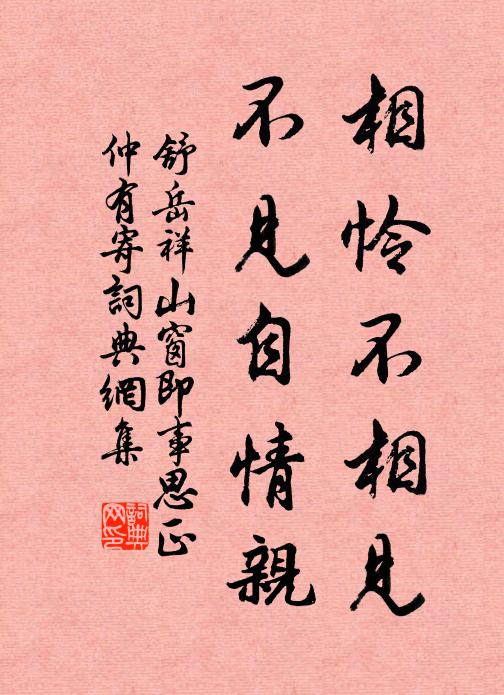 相怜不相見
不見自情親
舒岳祥山窗即事思正
仲有寄詞典網集
詞典
网印